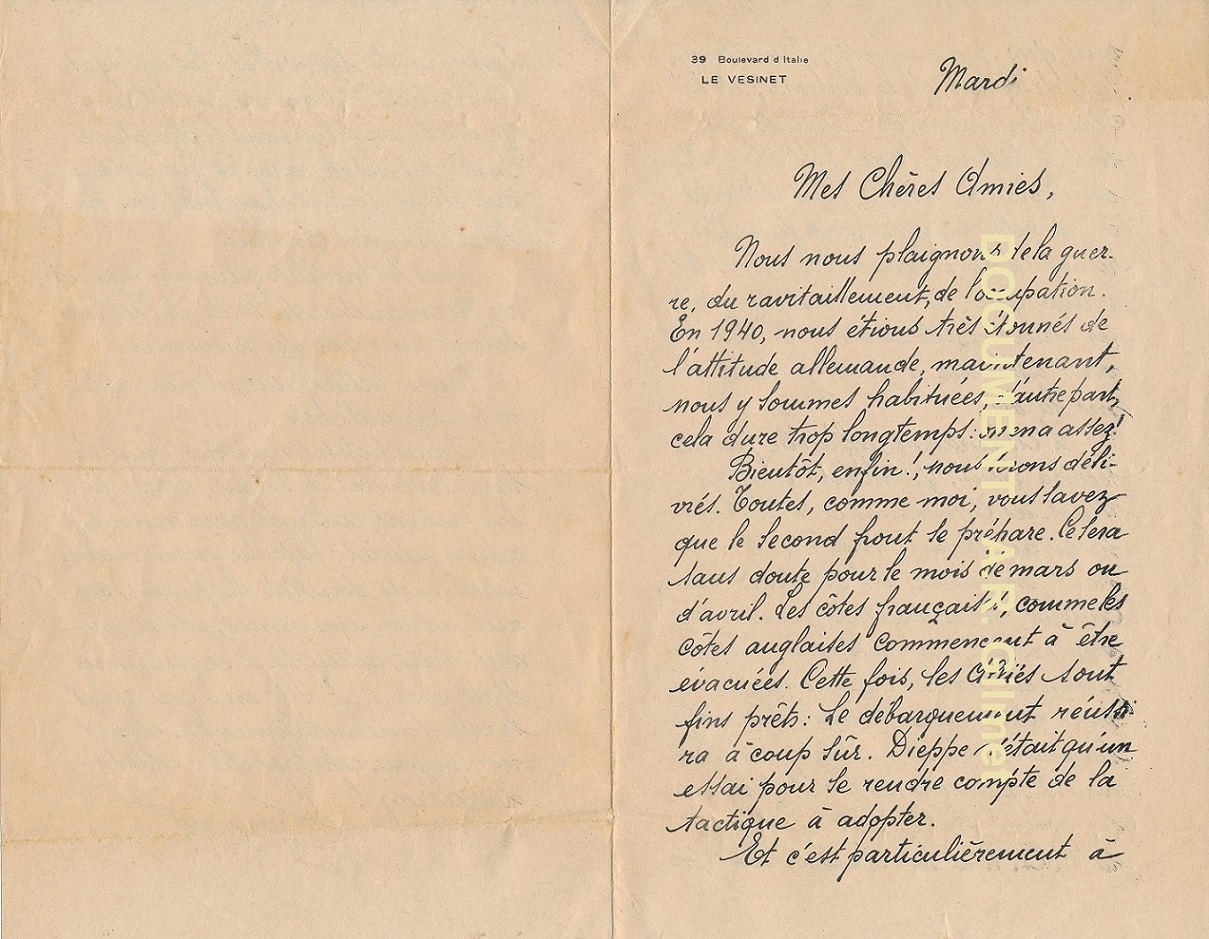 39 Boulevard d'Italie
LE VESINET
Mardi
Mes Chères Amies,
Nous nous plaignons de la guer-
re, du ravitaillement, de l'occupation.
En 1940, nous étions très étonnés de
l'attitude allemande, maintenant,
nous y sommes habituées, d'autre part,
cela dure trop longtemps: on en a assez!
Bientôt, enfin!, nous serons déli-
vrés. Toutes, comme moi, vous savez
que le second front se prépare. Ce sera
sans doute pour le mois de mars ou
d'avril. Les côtes françaises, comme les
côtes anglaises commencent à être
évacuées. Cette fois, les Alliés sont
fins prêts: Le débarquement réussi
ra à coup sûr. Dieppe n'était qu'un
essai pour se rendre compte de la
tactique à adopter.
Et c'est particulièrement à